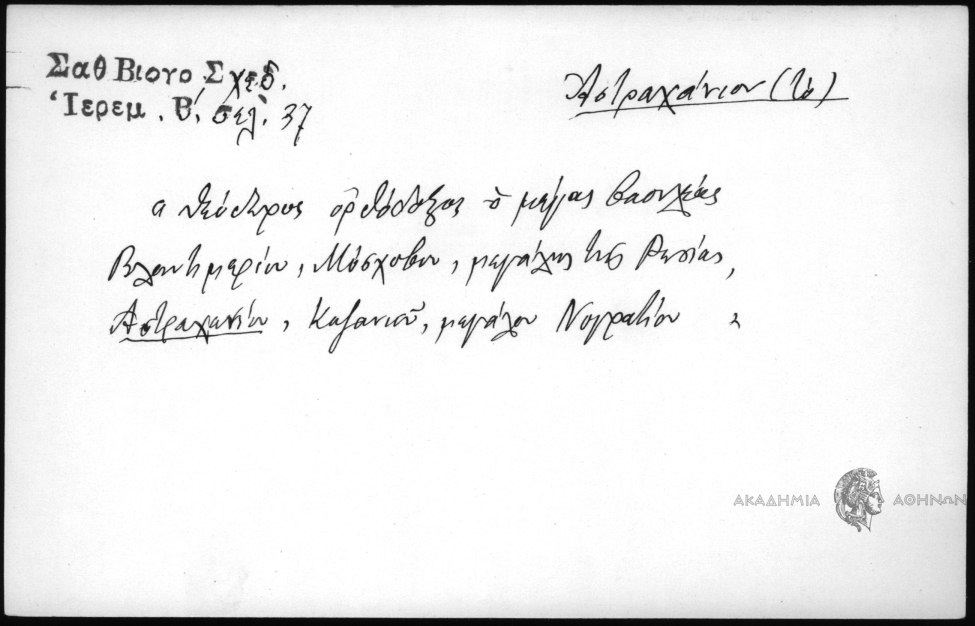 Σαθ Βιογρ Σχεδ.
Ἱερεμ. Β', σελ. 37
Ἀστραχάνιον (τὸ)
ὀρθόδοξος ὁ μέγας βασιλέας
Βλαντημερίου, Μόσχοβου, μεγάλης της Ρωσίας,
Ἀστραχανίου, Καζανιοῦ, μεγάλου Νογρατίου
ΑΚΑΔΗΜΙΑ ΑΘΗΝΩΝ